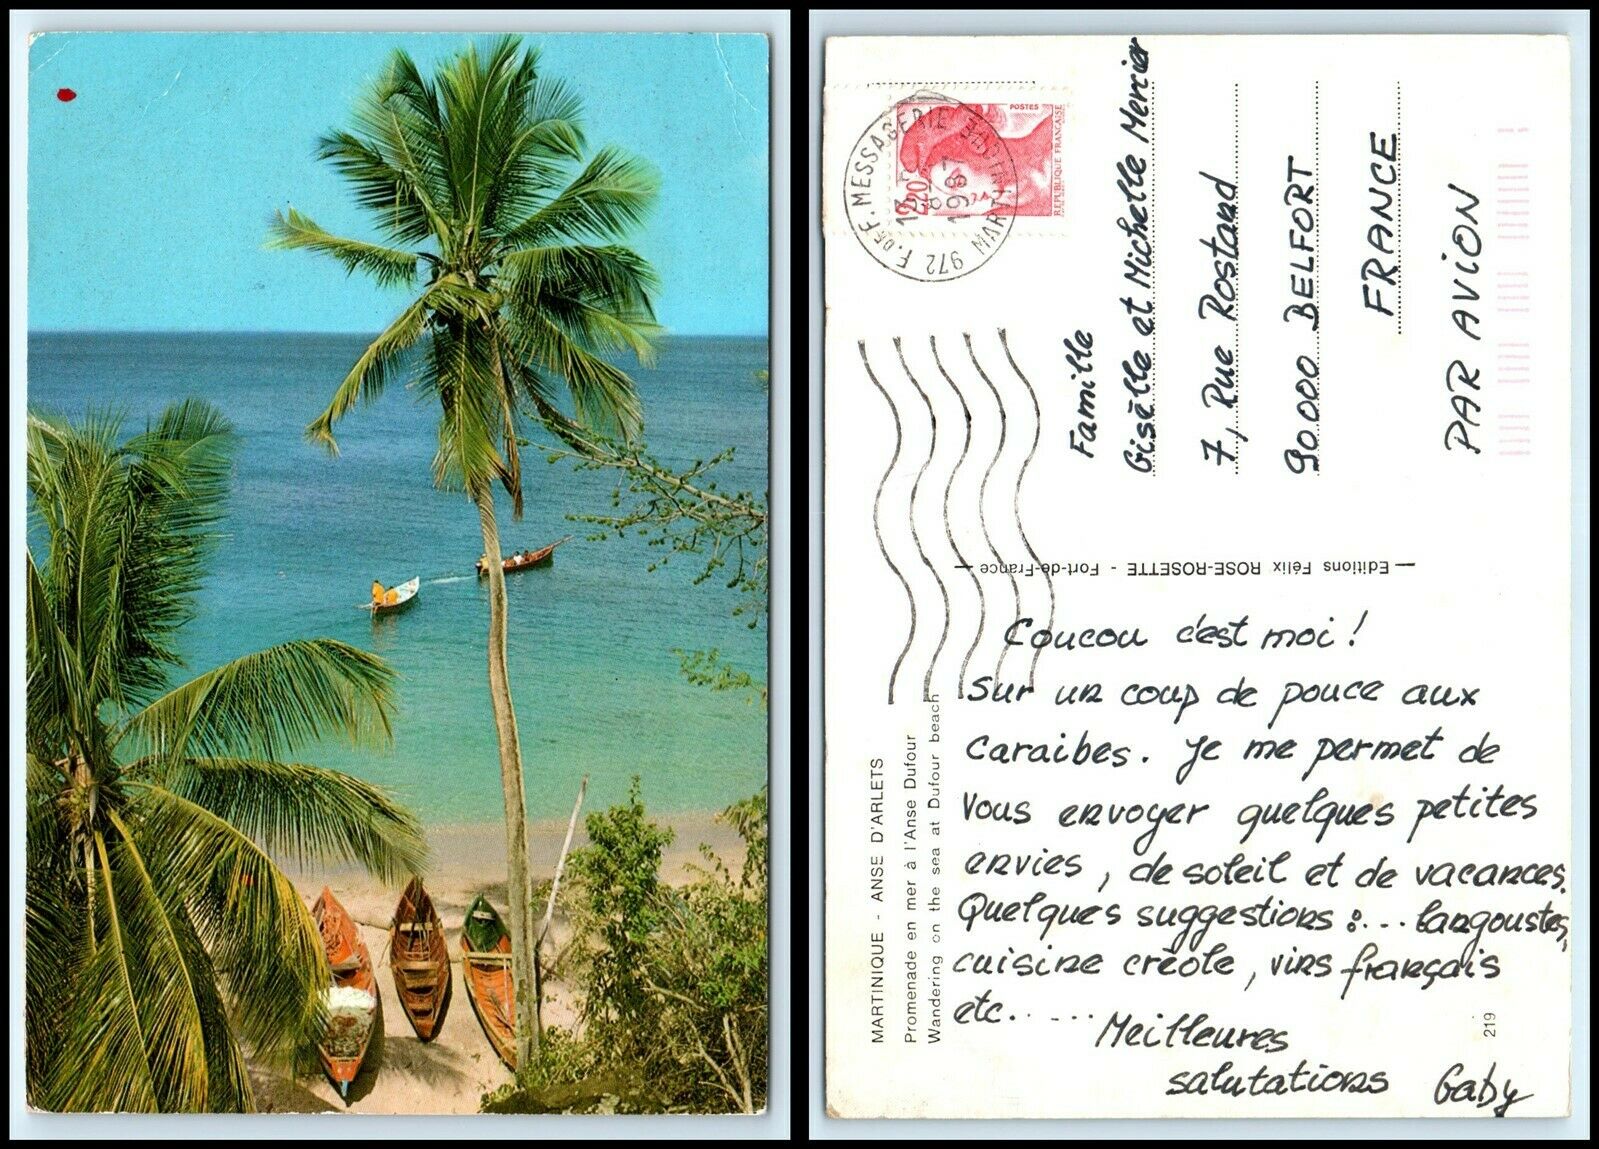 POSTES
REPUBLIQUE FRANÇAISE
2,20
F. DE F. MESSAGERIE
972
MARTINIQUE
1987
Famille
Gisèlle et Michelle Mercier
7, Rue Rostand
90.000 BELFORT
FRANCE
PAR AVION
— Editions Félix ROSE-ROSETTE - Fort-de-France —
MARTINIQUE - ANSE D'ARLETS
Promenade en mer à l'Anse Dufour
Wandering on the sea at Dufour beach
219
Coucou c'est moi !
Sur un coup de pouce aux
Caraibes. Je me permet de
Vous envoyer quelques petites
envies, de soleil et de vacances.
Quelques suggestions :... langoustes,
cuisine créole, vins français
etc......
Meilleures
salutations
Gaby